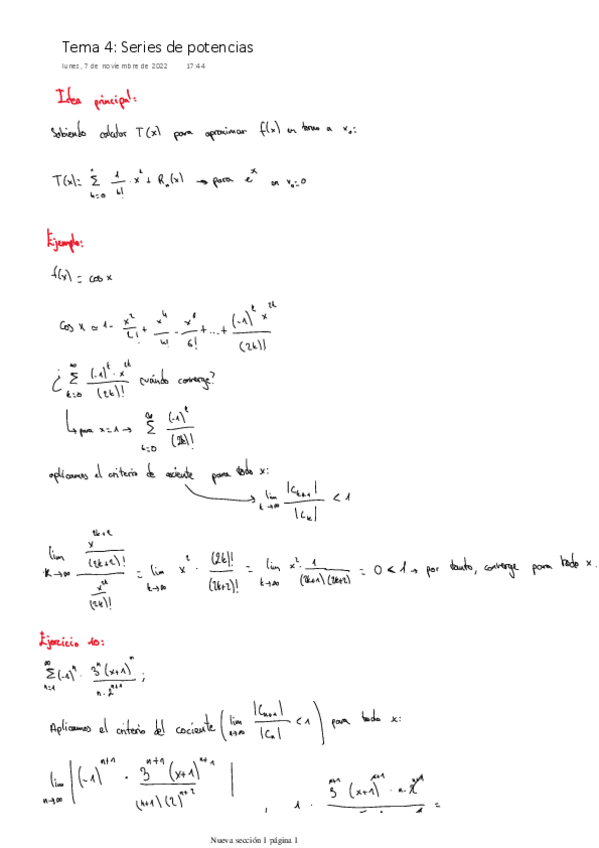 Tema 4: Series de potencias
lunes, 7 de noviembre de 2022 17:44
Idea principal:
Sabiendo calcular T(x) para aproximar f(x) en torno a x₀:
T(x)= Σ_{k=0}^{n} 1/k! · x^k + R_n(x) → para e^x en x₀=0
Ejemplo:
f(x) = cos x
cos x ≃ 1 - x²/2! + x⁴/4! - x⁶/6! + ... + (-1)^k x^{2k}/(2k)!
¿ Σ_{k=0}^{∞} (-1)^k · x^{2k}/(2k)! cuándo converge?
↳ para x=1 → Σ_{k=0}^{∞} (-1)^k/(2k)!
aplicamos el criterio de cociente para todo x:
→ lim_{k→∞} |C_{k+1}|/|C_k| < 1
lim_{k→∞} (x^{2k+2}/(2k+2)!)/(x^{2k}/(2k)!) = lim_{k→∞} x² · (2k)!/(2k+2)! = lim_{k→∞} x² · 1/(2k+1)(2k+2) = 0 < 1 → por tanto, converge para todo x.
Ejercicio 10:
Σ_{n=1}^{∞} (-1)^n · 3^n (x+1)^n/n·2^{n+1} ;
Aplicamos el criterio del cociente ( lim_{n→∞} |C_{n+1}|/|C_n| < 1 ) para todo x:
lim_{n→∞} | (-1)^{n+1} · 3^{n+1} (x+1)^{n+1}/(n+1)(2)^{n+2} |
, 1 · 3^{n+1} (x+1)^{n+1} · n · 2^{n+1} =
Nueva sección 1 página 1